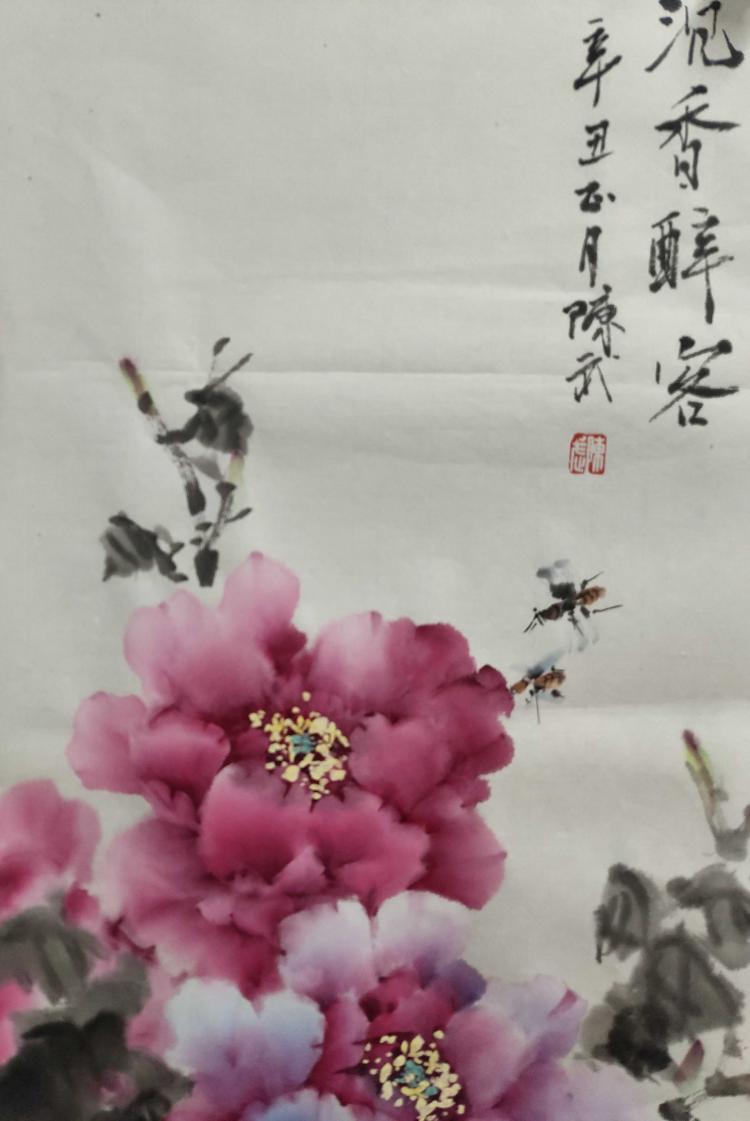 沉香醉客
辛丑正月陳武
陳武